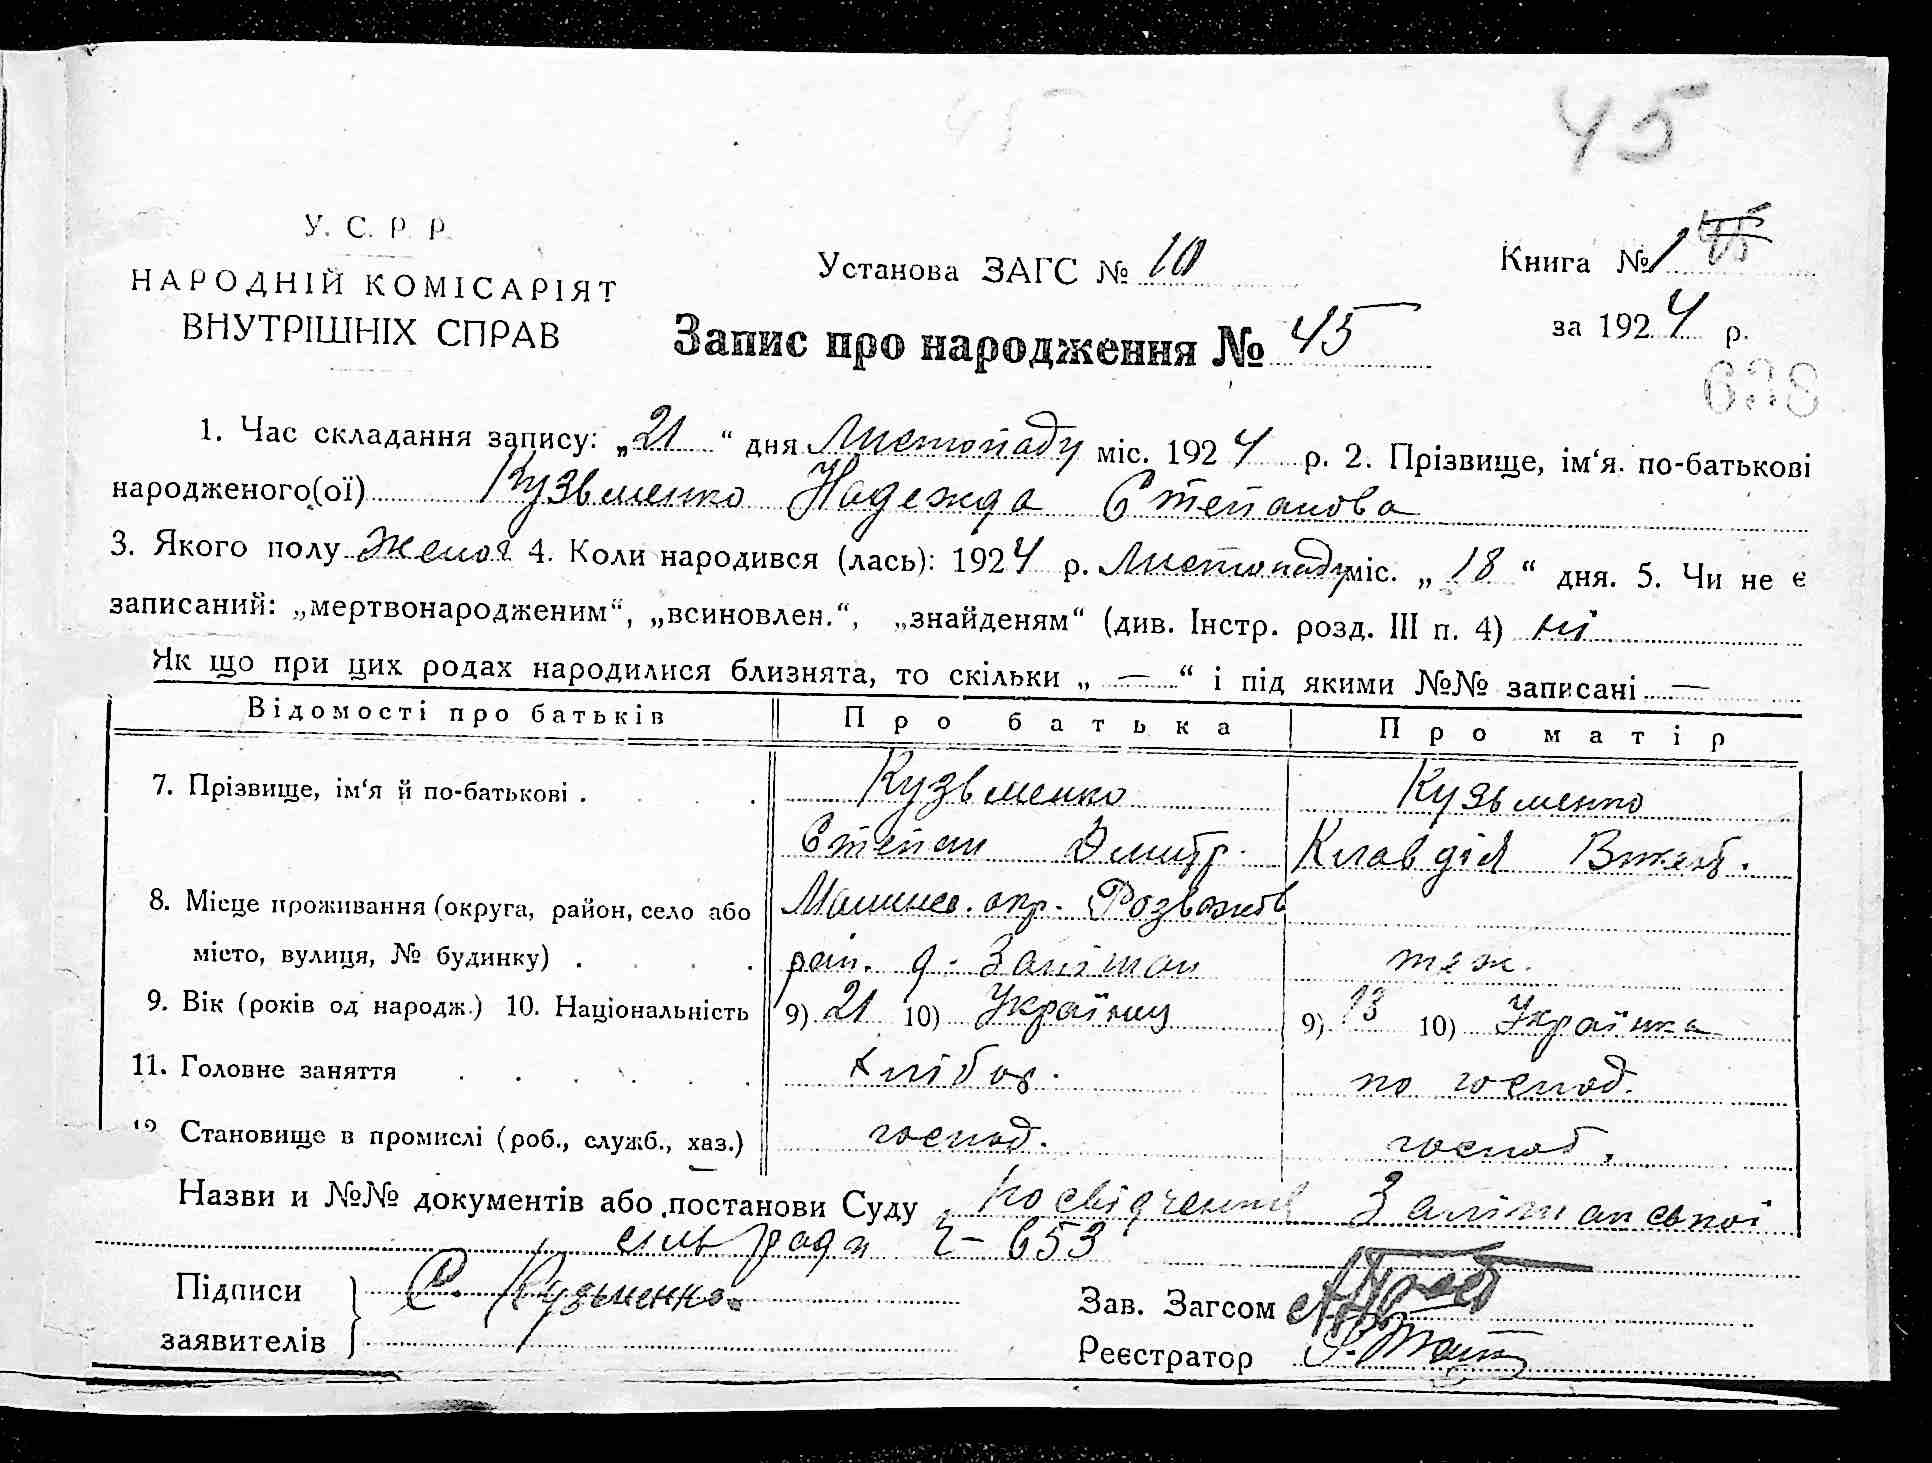 45
У. С. Р. Р.
НАРОДНІЙ КОМІСАРІЯТ
ВНУТРІШНІХ СПРАВ
Установа ЗАГС № 10
Книга № 1
Запис про народження № 45
за 1924 р.
638
1. Час складання запису: „21" дня Листопаду міс. 1924 р. 2. Прізвище, ім'я. по-батькові
народженого(ої) Кузьменко Надежда Степанова
3. Якого полу Женої 4. Коли народився (лась): 1924 р. Листопаду міс. „18" дня. 5. Чи не є
записаний: „мертвонародженим", „всиновлен.", „знайденям" (див. Інстр. розд. III п. 4) ні
Як що при цих родах народилися близнята, то скільки „—" і під якими №№ записані —
Відомості про батьків Про батька Про матір
7. Прізвище, ім'я й по-батькові . Кузьменко Кузьменко
Степан Дмитр. Клавдія Викент.
8. Місце проживання (округа, район, село або Малинс. окр. Розважів
місто, вулиця, № будинку) . рай. теж.
9. Вік (років од народж.) 10. Національність 9) 21 10) Українец 9) 10) Українка
11. Головне заняття хлібор. по господ.
12 Становище в промислі (роб., служб., хаз.) господ. господ.
Назви и №№ документів або постанови Суду посвідчення
сільради ч- 653
Підписи С. Кузьменко.
Зав. Загсом
заявителів
Реєстратор